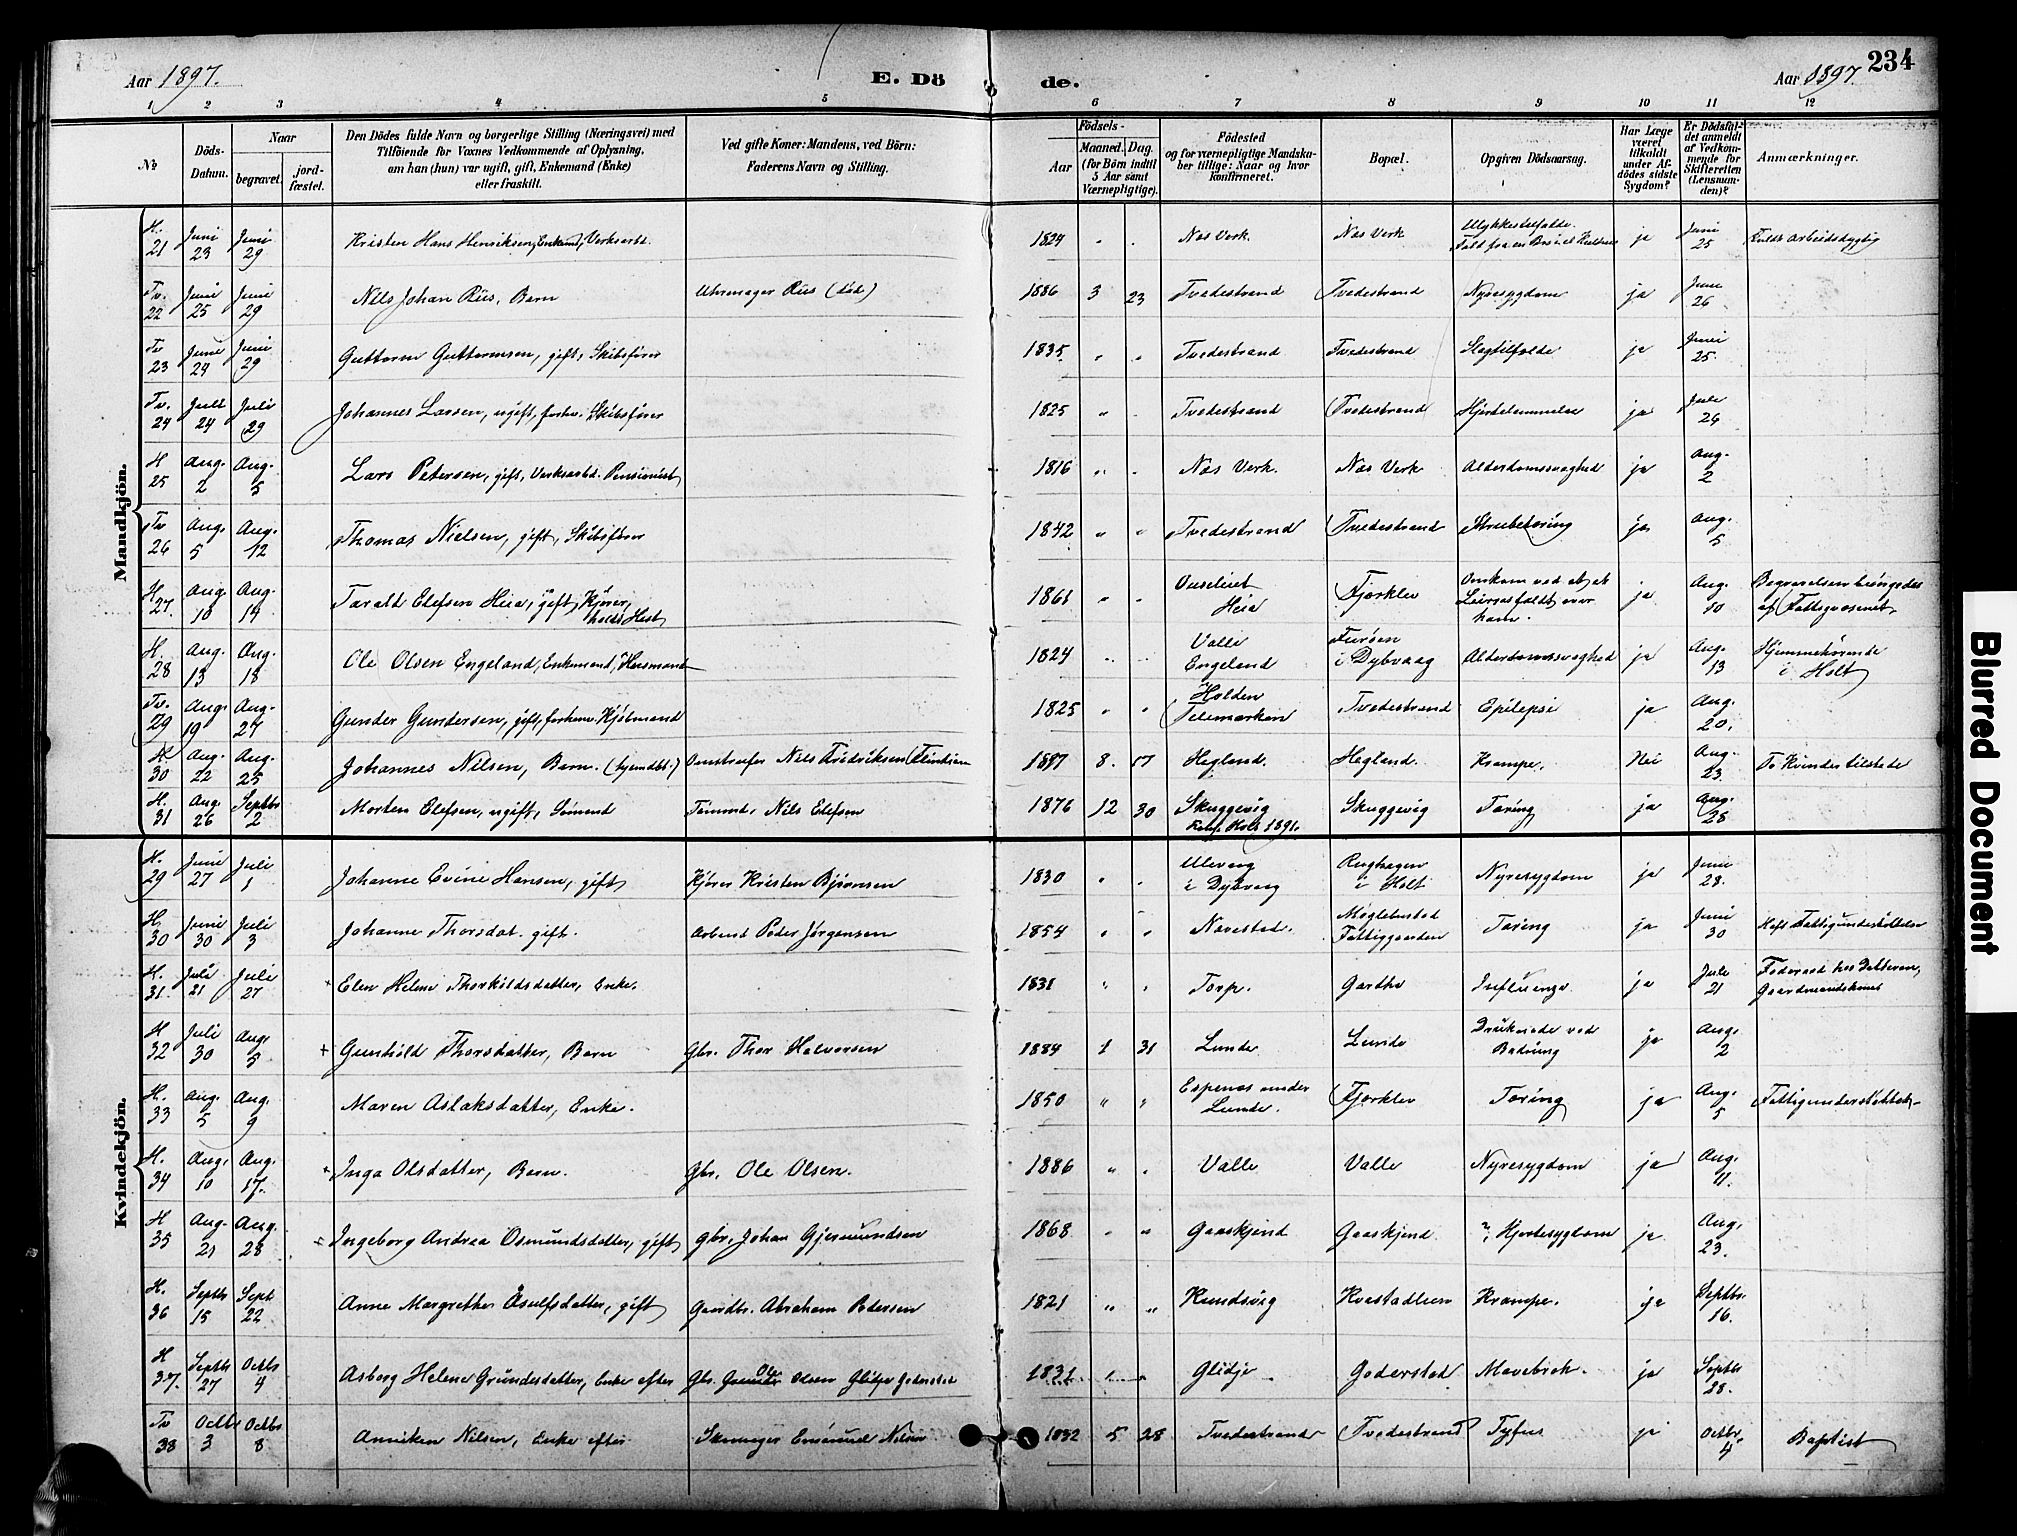 Aar 1897. E. Dö de. Aar 1897. 234
1 2 3 4 5 6 7 8 9 10 11 12
No
Döds-Datum.
Naar
begravet.
jord-fæstet.
Den Dödes fulde Navn og borgerlige Stilling (Næringsvei) med
Tilföiende for Voxnes Vedkommende af Oplysning,
om han (hun) var ugift, gift, Enkemand (Enke)
eller fraskilt.
Ved gifte Koner: Mandens, ved Börn:
Faderens Navn og Stilling.
Födsels-
Aar
Maaned. Dag.
(for Börn indtil
5 Aar samt
Værnepligtige).
Födested
og for værnepligtige Mandska-
ber tillige: Naar og hvor
konfirmeret.
Bopæl.
Opgiven Dödsaarsag.
Har Læge
været
tilkaldt
under Af-
dödes sidste
Sygdom?
Er Dödsfal-
det anmeldt
af Vedkom-
mende for
Skifteretten
(Lensman-
den)?
Anmærkninger.
Mandkjön.
H. 21 Juni 23 Juni 29 Kristen Hans Henriksen, Enkemd, Verksarbd. 1824 " " Næs Verk. Næs Verk Ulykkestilfælde. Faldt fra en ja Juni 25 Fuldt arbeidsdygtig
Tv. 22 Juni 25 Juni 29 Nils Johan Riis, Barn Uhrmager Riis (död) 1886 3 23 Tvedestrand Tvedestrand Nyresygdom ja Juni 26
Tv 23 Juni 24 Juni 29 Guttorm Guttormsen, gift, Skibsfører 1835 " " Tvedestrand Tvedestrand Slagtilfælde ja Juni 25.
Tv. 24 Juli 24 Juli 29 Johannes Larsen, ugift, forhv. Skibsfører 1825 " " Tvedestrand Tvedestrand Hjertelammelse ja Juli 26
H 25 Aug. 2 Aug. 5 Lars Petersen, gift, Verksarbd. Pensionist 1816 " " Næs Verk. Næs Verk Alderdomssvaghed ja Aug. 2
Tv 26 Aug. 5 Aug. 12 Thomas Nielsen, gift, Skibsfører 1842 " " Tvedestrand Tvedestrand Strubetæring ja Aug. 5
H. 27 Aug. 10 Aug. 14 Tarald Elefsen Heia, gift, Kjører, holdt Hest 1861 " " Heia Fjærklev Omkom ved at et faldt over ham. ja Aug. 10 Begravelsen besørgedes af Fattigvæsenet
H. 28 Aug. 13 Aug. 18 Ole Olsen Engeland, Enkemand, Husmand 1824 " " Valle Engeland Furøen i Dybvaag Alderdomssvaghed ja Aug. 13 Hjemmehørende i Holt
Tv. 29 Aug. 19 Aug. 24 Gunder Gundersen, gift, forhenv. Kjøbmand 1825 " " Holden Telemarken Tvedestrand Epilepsi ja Aug. 20.
H 30 Aug. 22 Aug. 25 Johannes Nilsen, Barn. (hjemdbt.) Nils Fredriksen 1897 8. 17 Hegland. Hegland. Krampe. Nei Aug. 23. To Kvinder tilstede
H. 31 Aug. 26 Septbr 2 Morten Elefsen, ugift, Sømand Tømmd. Nils Elefsen 1876 12 30 Skuggevig Konf. Holt 1891. Skuggevig Tæring ja Aug. 28
Kvindekjön.
H. 29 Juni 27 Juli 1 Johanne Evine Hansen, gift Kjører Kristen Bjørnsen 1830 " " Ulevaag i Dybvaag i Holt Nyresygdom ja Juni 28.
H. 30 Juni 30 Juli 3 Johanne Thorsdat. gift. Arbmd Peder Jørgensen 1854 " " Navestad. Møglebustad Fattiggaarden Tæring ja Juni 30 Haft Fattigunderstøttelse
H. 31. Juli 21 Juli 27 + Elen Helene Thorkildsdatter, Enke. 1831 " " Torp. Garthe Influenza ja Juli 21 Føderaad hos Datteren, Gaardmandskone
H 32 Juli 30 Aug. 5 + Gunhild Thorsdatter, Barn Gbr. Thor Halvorsen 1884 1 31 Lunde Lunde Druknede ved Badning ja Aug. 2
H. 33 Aug. 5 Aug. 9 Maren Aslaksdatter, Enke. 1850 " " Espenes under Lunde. Fjærklev Tæring ja Aug. 5 Fattigunderstøttet
H. 34 Aug. 10 Aug. 17. + Inga Olsdatter, Barn. Gbr. Ole Olsen. 1886 " " Valle Valle Nyresygdom ja Aug. 11.
H 35 Aug. 21 Aug. 28 + Ingeborg Andrea Osmundsdatter, gift gbr. Johan Gjermundsen 1868 " " Gaaskjend Gaaskjend. Hjertesygdom ja Aug. 23.
H. 36 Septbr 15 Sept 22 Anne Margrethe Osulfsdatter, gift Gaardbr. Abraham Petersen 1821 " " Kundsvig Kvastadlien Krampe. ja Septbr. 16.
H 37. Septbr 27 Octbr 4 Asborg Helene Gundersdatter, Enke efter Gbr. Ole Olsen Glidje Goderstad 1831 " " Glidje Goderstad Mavebrok. ja Septbr 28.
Tv 38 Octbr 3 Octbr 8 Anniken Nilsen, Enke efter Skomager Emanuel Nilsen 1832 5 28 Tvedestrand Tvedestrand Tyfus ja Octbr. 4 Baptist
Blurred Document